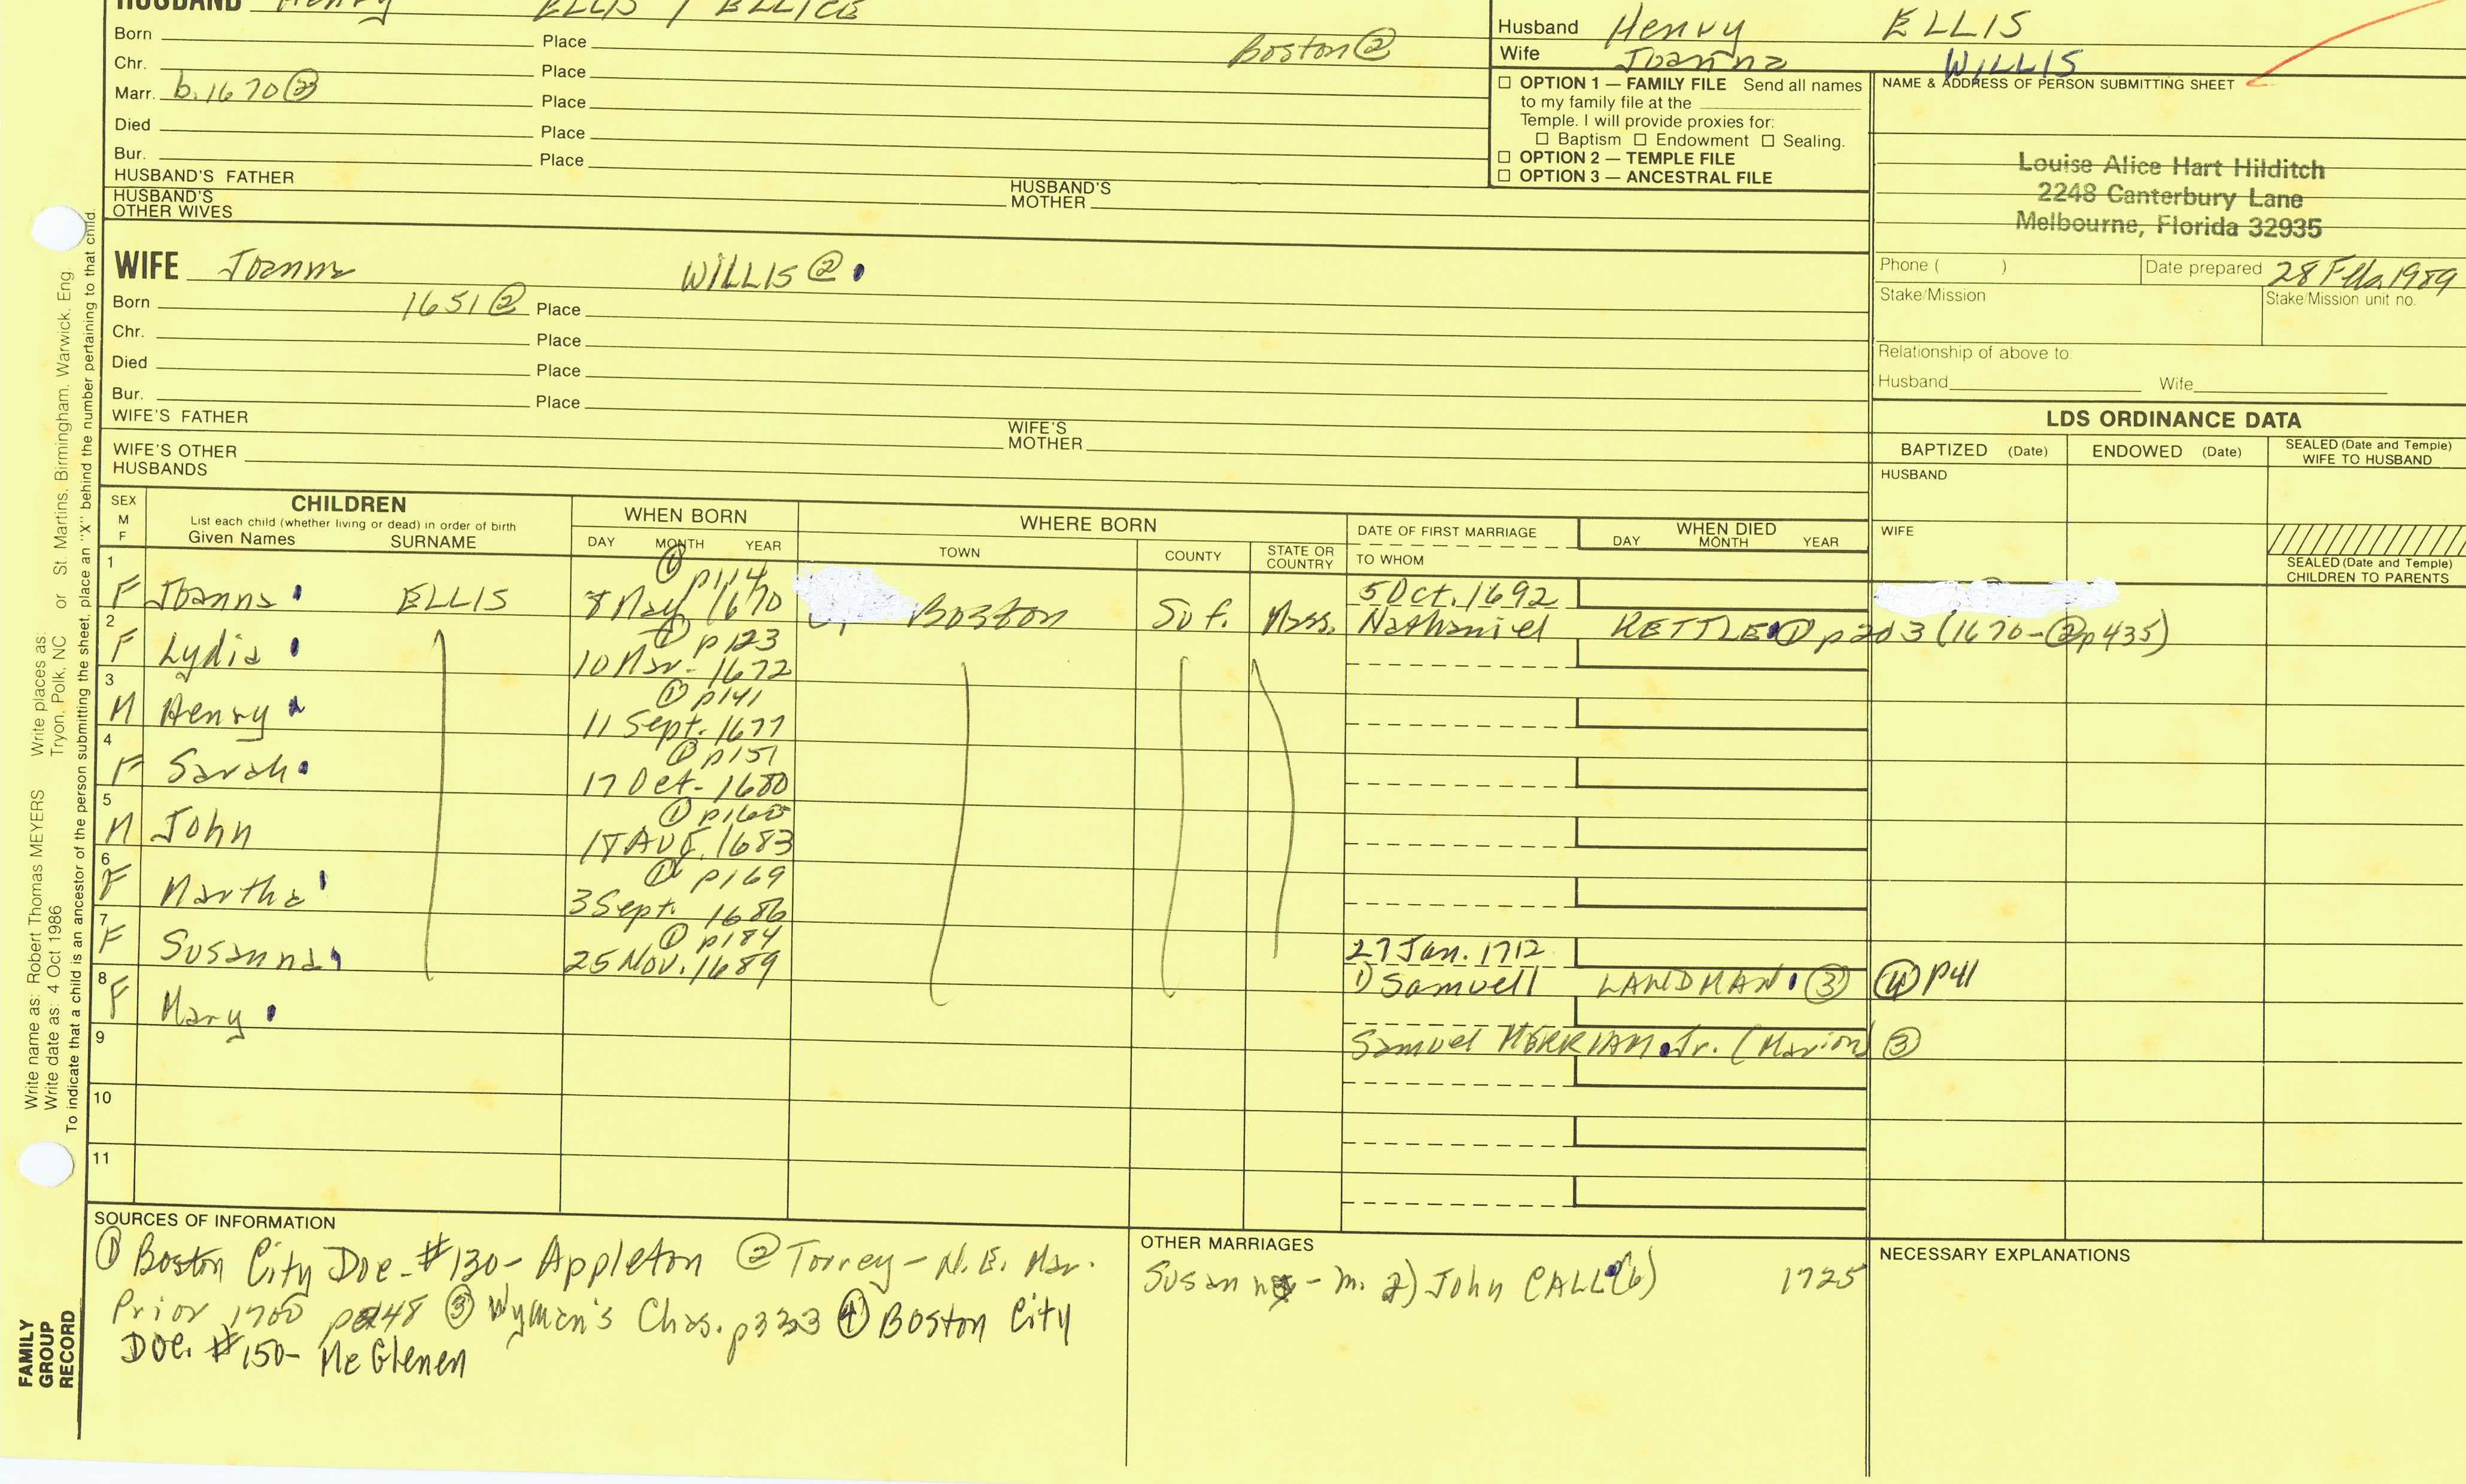 HUSBAND Henry ELLIS / ELLICE
Born Place Boston ②
Chr. Place
Marr. b. 1670 ② Place
Died Place
Bur. Place
HUSBAND'S FATHER HUSBAND'S MOTHER
HUSBAND'S OTHER WIVES
Husband Henry ELLIS
Wife Joanna WILLIS
☐ OPTION 1 — FAMILY FILE Send all names
to my family file at the
Temple. I will provide proxies for:
☐ Baptism ☐ Endowment ☐ Sealing.
☐ OPTION 2 — TEMPLE FILE
☐ OPTION 3 — ANCESTRAL FILE
NAME & ADDRESS OF PERSON SUBMITTING SHEET
Louise Alice Hart Hilditch
2248 Canterbury Lane
Melbourne, Florida 32935
Phone ( ) Date prepared 28 1989
Stake/Mission Stake/Mission unit no.
Relationship of above to
Husband Wife
WIFE Joanna WILLIS ②
Born 1651 ② Place
Chr. Place
Died Place
Bur. Place
WIFE'S FATHER WIFE'S MOTHER
WIFE'S OTHER HUSBANDS
LDS ORDINANCE DATA
BAPTIZED (Date) ENDOWED (Date) SEALED (Date and Temple) WIFE TO HUSBAND
HUSBAND
WIFE
SEALED (Date and Temple) CHILDREN TO PARENTS
SEX M F
CHILDREN
List each child (whether living or dead) in order of birth
Given Names SURNAME
WHEN BORN
DAY MONTH YEAR
WHERE BORN
TOWN COUNTY STATE OR COUNTRY
DATE OF FIRST MARRIAGE
TO WHOM
WHEN DIED
DAY MONTH YEAR
① p114
1 F Joanna ELLIS 8 May 1670 Boston Suf. Mass. 5 Oct. 1692
Nathaniel KETTLE ① p203 (1670- ② p435)
① p123
2 F Lydia 10 Mar. 1672
① p141
3 M Henry 11 Sept. 1677
① p151
4 F Sarah 17 Oct. 1680
① p160
5 M John 18 AUG. 1683
① p169
6 F Martha 3 Sept. 1686
① p184
7 F Susanna 25 Nov. 1689 27 Jan. 1712
1) Samuell LANDMAN ③ ④ p41
8 F Mary
Samuel MERRIAM Jr. (Marion) ③
9
10
11
SOURCES OF INFORMATION
① Boston City Doc. #130- Appleton ② Torrey - N.E. Mar.
Prior 1700 p248 ③ Wyman's Chas. p333 ④ Boston City
Doc. #150- McGlenen
OTHER MARRIAGES
Susanna - m. 2) John CALL (6) 1725
NECESSARY EXPLANATIONS
FAMILY GROUP RECORD
Write name as: Robert Thomas MEYERS Write places as:
Write date as: 4 Oct 1986 Tryon, Polk, NC or St. Martins, Birmingham, Warwick, Eng
To indicate that a child is an ancestor of the person submitting the sheet, place an "X" behind the number pertaining to that child.